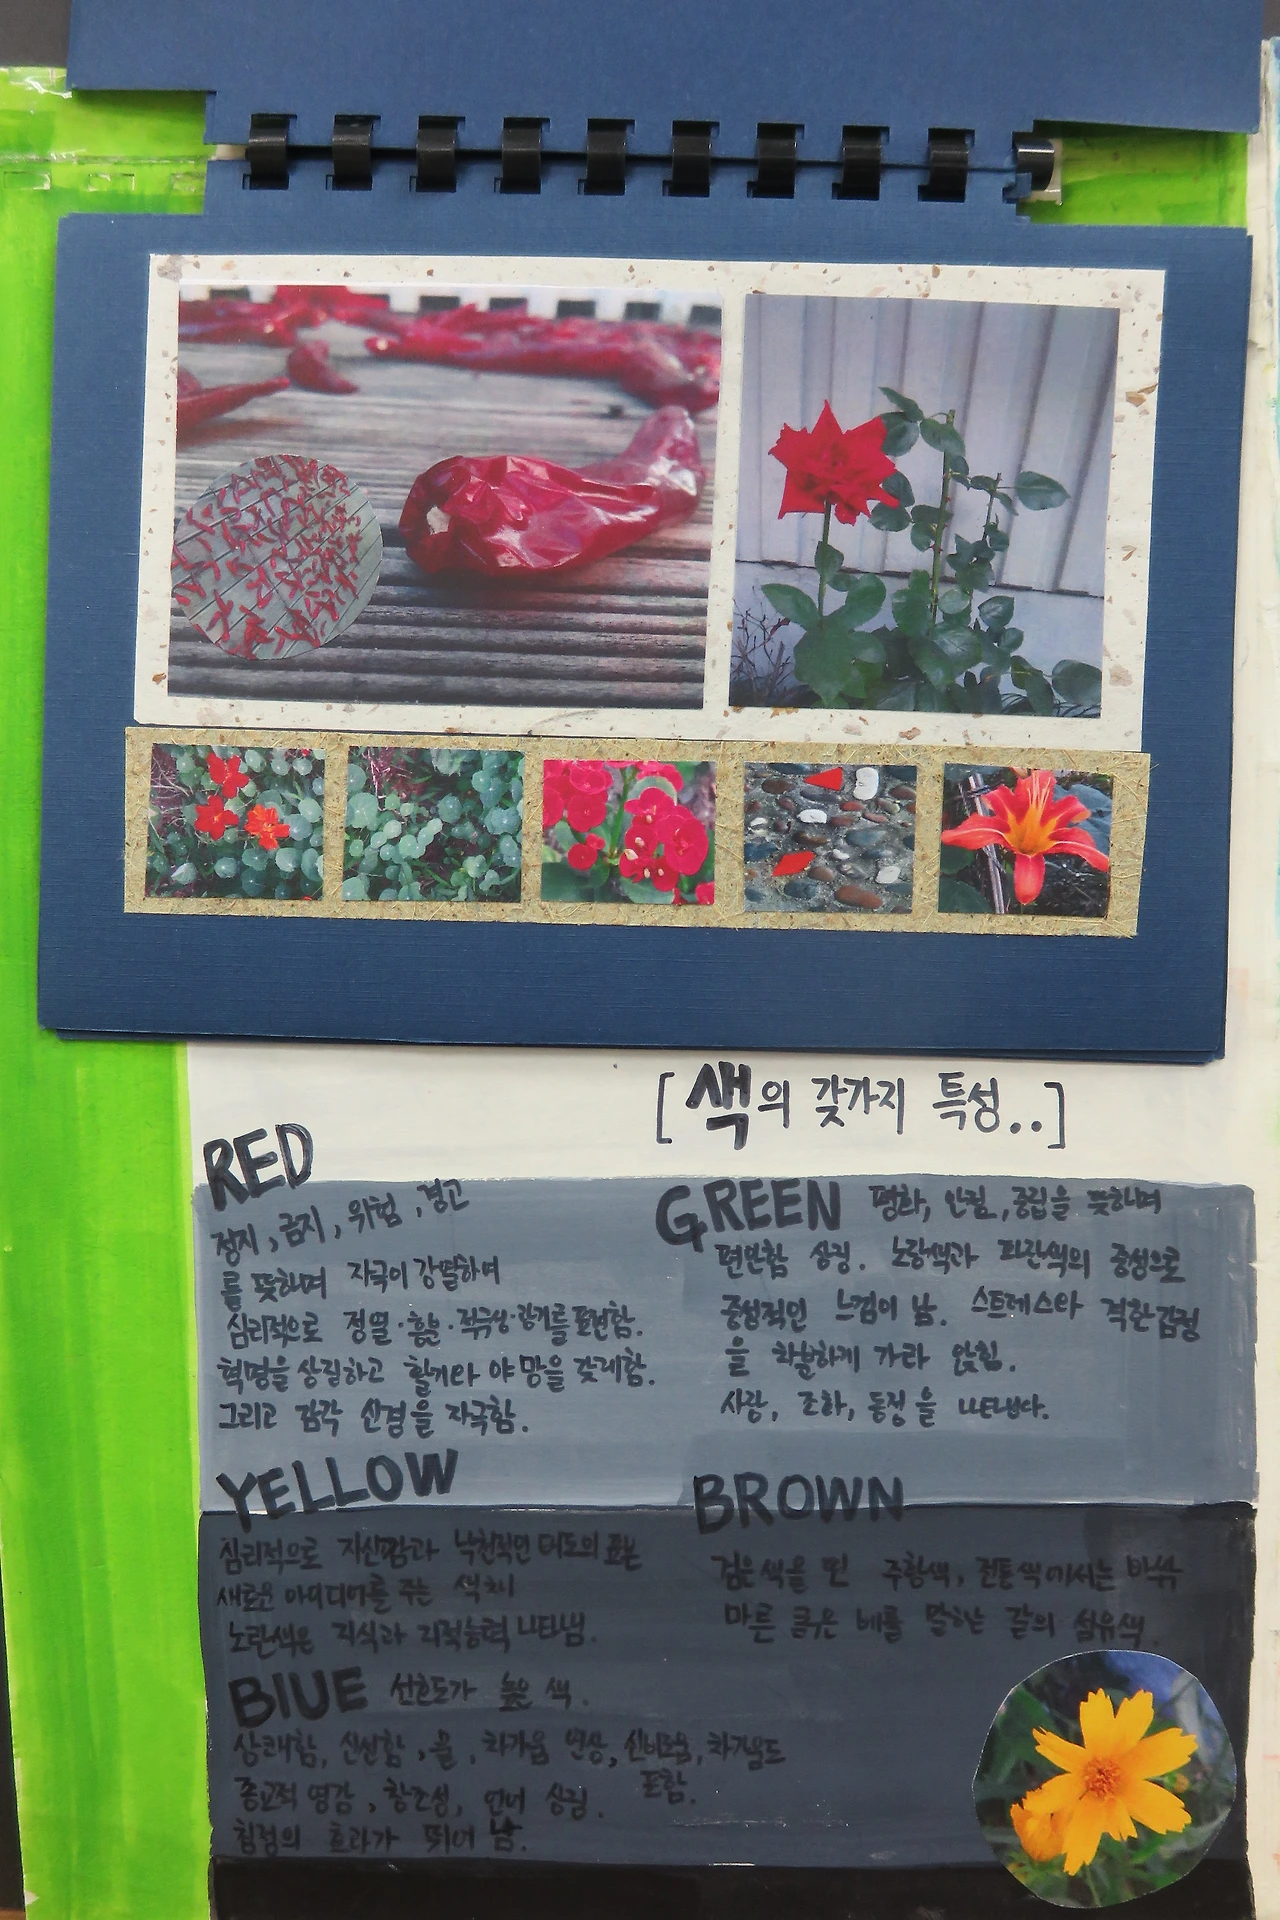 [ 색의 갖가지 특성..]
RED
정지, 금지, 위험, 경고
를 뜻하며 자극이 강렬하여
심리적으로 정열·흥분·적극성·광기를 표현함.
혁명을 상징하고 활기와 야망을 갖게함.
그리고 감각 신경을 자극함.
GREEN 평화, 안전, 중립을 뜻하며
편안함 상징. 노랑색과 파란색의 중성으로
중성적인 느낌이 남. 스트레스와 격한감정
을 차분하게 가라 앉힘.
사랑, 조화, 동정을 나타낸다.
YELLOW
심리적으로 자신감과 낙천적인 태도의 표본
새로운 아이디어를 주는 색채
노란색은 지식과 지적능력 나타냄.
BROWN
검은색을 띤 주황색, 전통색에서는
마른 베를 말하는 갈의 섬유색.
BlUE 선호도가 높은 색.
상쾌함, 신선함, 물, 차가움 연상, 신비로움, 차가움도
포함.
종교적 영감, 창조성, 언어 상징.
침정의 효과가 뛰어 남.